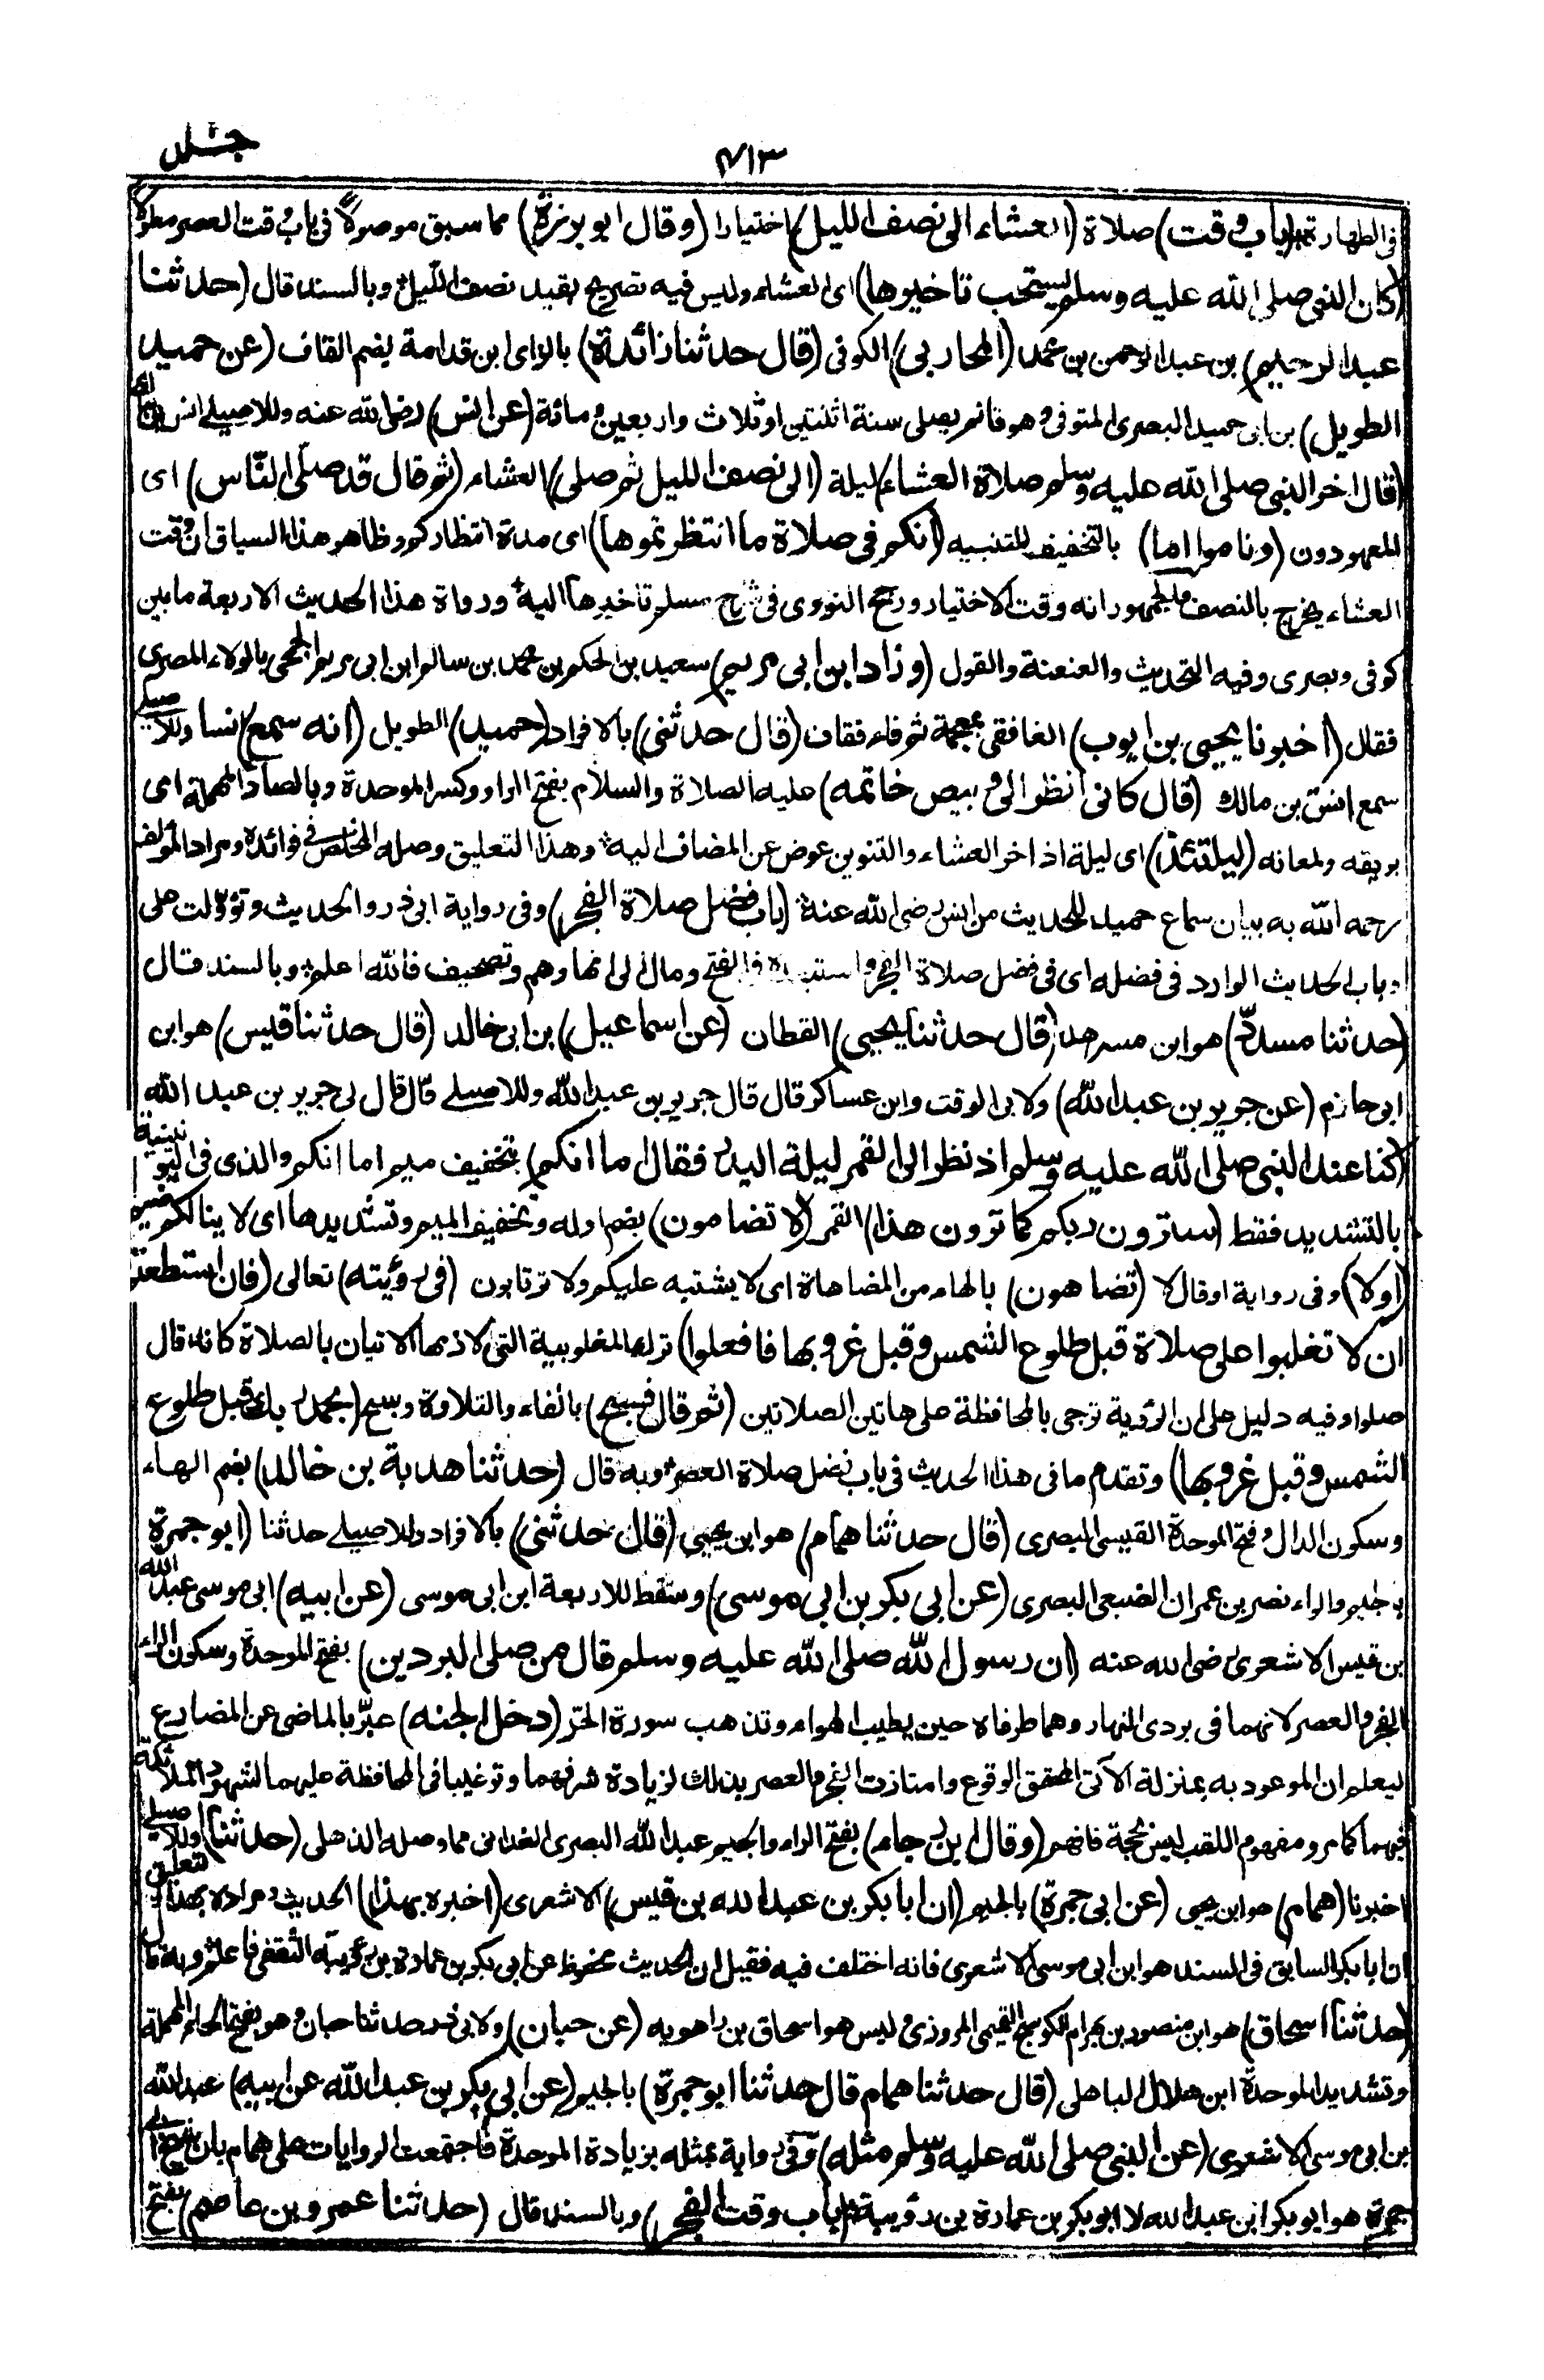 ٤١٣
فى الطهارة (باب وقت) صلاة (العشاء الى نصف الليل) اختيارا (وقال ابو برزة) مما سبق موصولا فى باب وقت العصر مطولا
(كان النبى صلى الله عليه وسلم يستحب تاخيرها) اى العشاء وليس فيه تصريح بقيد نصف الليل وبالسند قال (حدثنا
عبد الرحيم) بن عبد الرحمن بن محمد (المحاربى) الكوفى (قال حدثنا زائدة) بالزاى ابن قدامة بضم القاف (عن حميد
الطويل) بن ابى حميد البصرى المتوفى وهو قائم يصلى سنة اثنتين او ثلاث واربعين ومائة (عن انس) رضى الله عنه وللاصيلى انس بن مالك
(قال اخر النبى صلى الله عليه وسلم صلاة العشاء) ليلة (الى نصف الليل ثم صلى) العشاء (ثم قال قد صلى الناس) اى
المعهودون (وناموا اما) بالتخفيف للتنبيه (انكم فى صلاة ما انتظرتموها) اى مدة انتظاركم وظاهر هذا السياق ان وقت
العشاء يخرج بالنصف والجمهور انه وقت الاختيار ورجح النووى فى شرح مسلم تاخيرها اليه ورواة هذا الحديث الاربعة ما بين
كوفى وبصرى وفيه التحديث والعنعنة والقول (وزاد ابن ابى مريم) سعيد بن الحكم بن محمد بن سالم ابن ابى مريم الجمحى بالولاء المصرى
فقال (اخبرنا يحيى بن ايوب) الغافقى بمعجمة ثم فاء فقاف (قال حدثنى) بالافراد (حميد) الطويل (انه سمع) انسا وللاصيلى
سمع انس بن مالك (قال كانى انظر الى وبيص خاتمه) عليه الصلاة والسلام بفتح الواو وكسر الموحدة وبالصاد المهملة اى
بريقه ولمعانه (ليلتئذ) اى ليلة اذ اخر العشاء والتنوين عوض عن المضاف اليه وهذا التعليق وصله المخلص فى فوائده ومراد المؤلف
رحمه الله به بيان سماع حميد للحديث من انس رضى الله عنه (باب فضل صلاة الفجر) وفى رواية ابى ذر والحديث وتؤولت على
وباب الحديث الوارد فى فضله اى فى فضل صلاة الفجر واستبعده فى الفتح ومال الى انها وهم وتصحيف فالله اعلم وبالسند قال
(حدثنا مسدد) هو ابن مسرهد (قال حدثنا يحيى) القطان (عن اسماعيل) بن ابى خالد (قال حدثنا قيس) هو ابن
ابى حازم (عن جرير بن عبد الله) ولابى الوقت وابن عساكر قال قال جرير بن عبد الله وللاصيلى قال قال لى جرير بن عبد الله
(كنا عند النبى صلى الله عليه وسلم اذ نظر الى القمر ليلة البدر فقال اما انكم) بتخفيف ميم اما انكم والذى فى اليونينية
بالتشديد فقط (سترون ربكم كما ترون هذا) القمر (لا تضامون) بضم اوله وتخفيف الميم وتشديدها اى لا ينالكم ضيم
(او لا) وفى رواية او قال لا (تضاهون) بالهاء من المضاهاة اى لا يشتبه عليكم ولا ترتابون (فى رؤيته) تعالى (فان استطعتم
ان لا تغلبوا على صلاة قبل طلوع الشمس وقبل غروبها فافعلوا) ترك المغلوبية التى لازمها الاتيان بالصلاة كانه قال
صلوا وفيه دليل على ان الرؤية ترجى بالمحافظة على هاتين الصلاتين (ثم قال فسبح) بالفاء والتلاوة وسبح (بحمد ربك قبل طلوع
الشمس وقبل غروبها) وتقدم ما فى هذا الحديث فى باب فضل صلاة العصر وبه قال (حدثنا هدبة بن خالد) بضم الهاء
وسكون الدال وفتح الموحدة القيسى البصرى (قال حدثنا همام) هو ابن يحيى (قال حدثنى) بالافراد وللاصيلى حدثنا (ابو جمرة
بالجيم والراء نصر بن عمران الضبعى البصرى (عن ابى بكر بن ابى موسى) وسقط للاربعة ابن ابى موسى (عن ابيه) ابى موسى عبد الله
بن قيس الاشعرى رضى الله عنه (ان رسول الله صلى الله عليه وسلم قال من صلى البردين) بفتح الموحدة وسكون الراء
الفجر والعصر لانهما فى بردى النهار وهما طرفاه حين يطيب الهواء وتذهب سورة الحر (دخل الجنه) عبر بالماضى عن المضارع
ليعلم ان الموعود به بمنزلة الآتى المحقق الوقوع وامتازت الفجر والعصر بذلك لزيادة شرفهما وترغيبا فى المحافظة عليهما لشهود الملائكة
فيهما كما مر ومفهوم اللقب ليس بحجة فافهم (وقال ابن رجاء) بفتح الراء والجيم عبد الله البصرى الغدانى مما وصله الذهلى (حدثنا) وللاصيلى
اخبرنا (همام) هو ابن يحيى (عن ابى جمرة) بالجيم (ان ابا بكر بن عبد الله بن قيس) الاشعرى (اخبره بهذا) الحديث ومراده بهذا التعليق
ان ابا بكر السابق فى السند هو ابن ابى موسى الاشعرى فانه اختلف فيه فقيل ان الحديث محفوظ عن ابى بكر بن عمارة بن رؤيبة الثقفى فاعلم وبه قال
(حدثنا اسحاق) هو ابن منصور بن بهرام الكوسج التميمى المروزى وليس هو اسحاق بن راهويه (عن حبان) ولابى ذر حدثنا حبان وهو بفتح الحاء المهملة
وتشديد الموحدة ابن هلال الباهلى (قال حدثنا همام قال حدثنا ابو جمرة) بالجيم (عن ابى بكر بن عبد الله عن ابيه) عبد الله
بن ابى موسى الاشعرى (عن النبى صلى الله عليه وسلم مثله) وفى رواية بمثله بزيادة الموحدة فاجتمعت الروايات على همام بان شيخ ابى
جمرة هو ابو بكر ابن عبد الله لا ابو بكر بن عمارة بن رؤيبة (باب وقت الفجر) وبالسند قال (حدثنا عمرو بن عاصم) بفتح